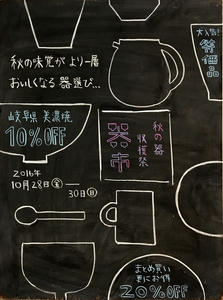 秋の味覚が より一層
おいしくなる 器選び…
大人気!!
特価品
岐阜県 美濃焼
10%OFF
秋の器
収穫祭
器市
2016年
10月28日㊎
30日㊐
まとめ買い
更にお得
20%OFF